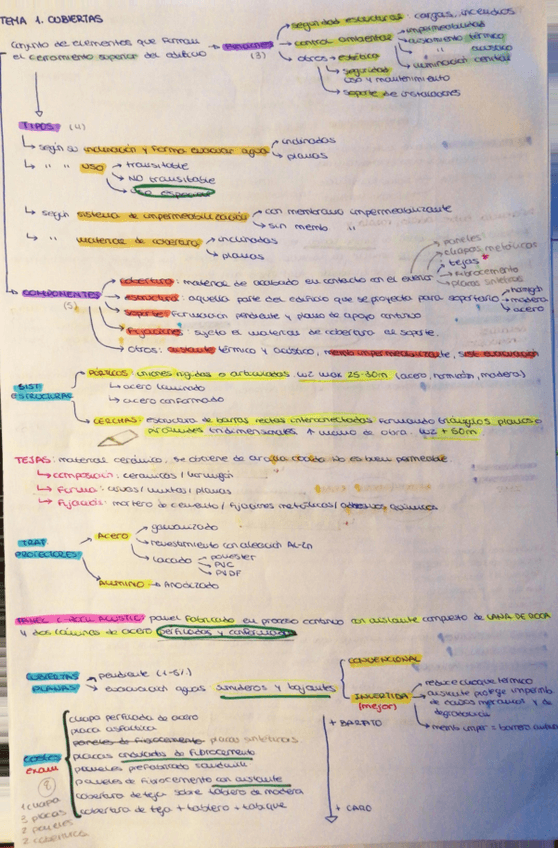 TEMA 1. CUBIERTAS
Conjunto de elementos que forman
el cerramiento superior del edificio
FUNCIONES
(3)
seguridad estructural: cargas, incendios
control ambiental
impermeabilidad
aislamiento térmico
" acústico
iluminación cenital
otros
estética
seguridad
uso y mantenimiento
soporte de instalaciones
TIPOS (4)
según su inclinación y forma evacuar agua
inclinadas
planas
" " USO
transitable
NO transitable
uso especial
según sistema de impermeabilización
con membrana impermeabilizante
sin memb "
" material de cobertura
inclinadas
planas
paneles
chapas metálicas
tejas *
fibrocemento
placas sintét
COMPONENTES
(5)
cobertura: material de acabado en contacto con el exterior
estructura: aquella parte del edificio que se proyecta para soportarlo
hormigón
madera
acero
soporte: formación pendiente y plano de apoyo continuo
fijaciones: sujeta el material de cobertura al soporte.
otros: aislante térmico y acústico, memb impermeabilizante, sist evacuación
SIST
ESTRUCTURAS
PÓRTICOS: uniones rígidas o articuladas luz max 25-30m (acero, hormigón, madera)
acero laminado
acero conformado
CERCHAS: estructura de barras rectas interconectadas formando triángulos, planos o
pirámides tridimensionales ↑ mano de obra. luz + 50m
TEJAS: material cerámico, se obtiene de arcilla cocida No es buen permeable
composición: cerámicas / hormigón
forma: curvas / mixtas / planas
fijación: mortero de cemento / fijaciones metálicas / adhesivos químicos
TRAT
PROTECTORES
Acero
galvanizado
revestimiento con aleación AL-Zn
lacado
poliester
PVC
PVDF
ALUMINIO → ANODIZADO
panel fabricado en proceso continuo con aislante compuesto de LANA DE ROCA
y dos láminas de acero perfiladas y conformadas
CUBIERTAS
PLANAS
pendiente (1-5%)
evacuación aguas sumideros y bajantes
CONVENCIONAL
INVERTIDA
(mejor)
reduce choque térmico
aislante protege impermb
de daños mecánicos y de
degradación
memb imper = barrera
costes
exam
chapa perfilada de acero
placa asfáltica
paneles de fibrocemento placas sintéticas
placas onduladas de fibrocemento
paneles prefabricado sandwich
paneles de fibrocemento con aislante
cobertura de teja sobre tablero de madera
cobertura de teja + tablero + tabique
+ BARATO
+ CARO
1 chapa
3 placas
2 paneles
2 cobertura